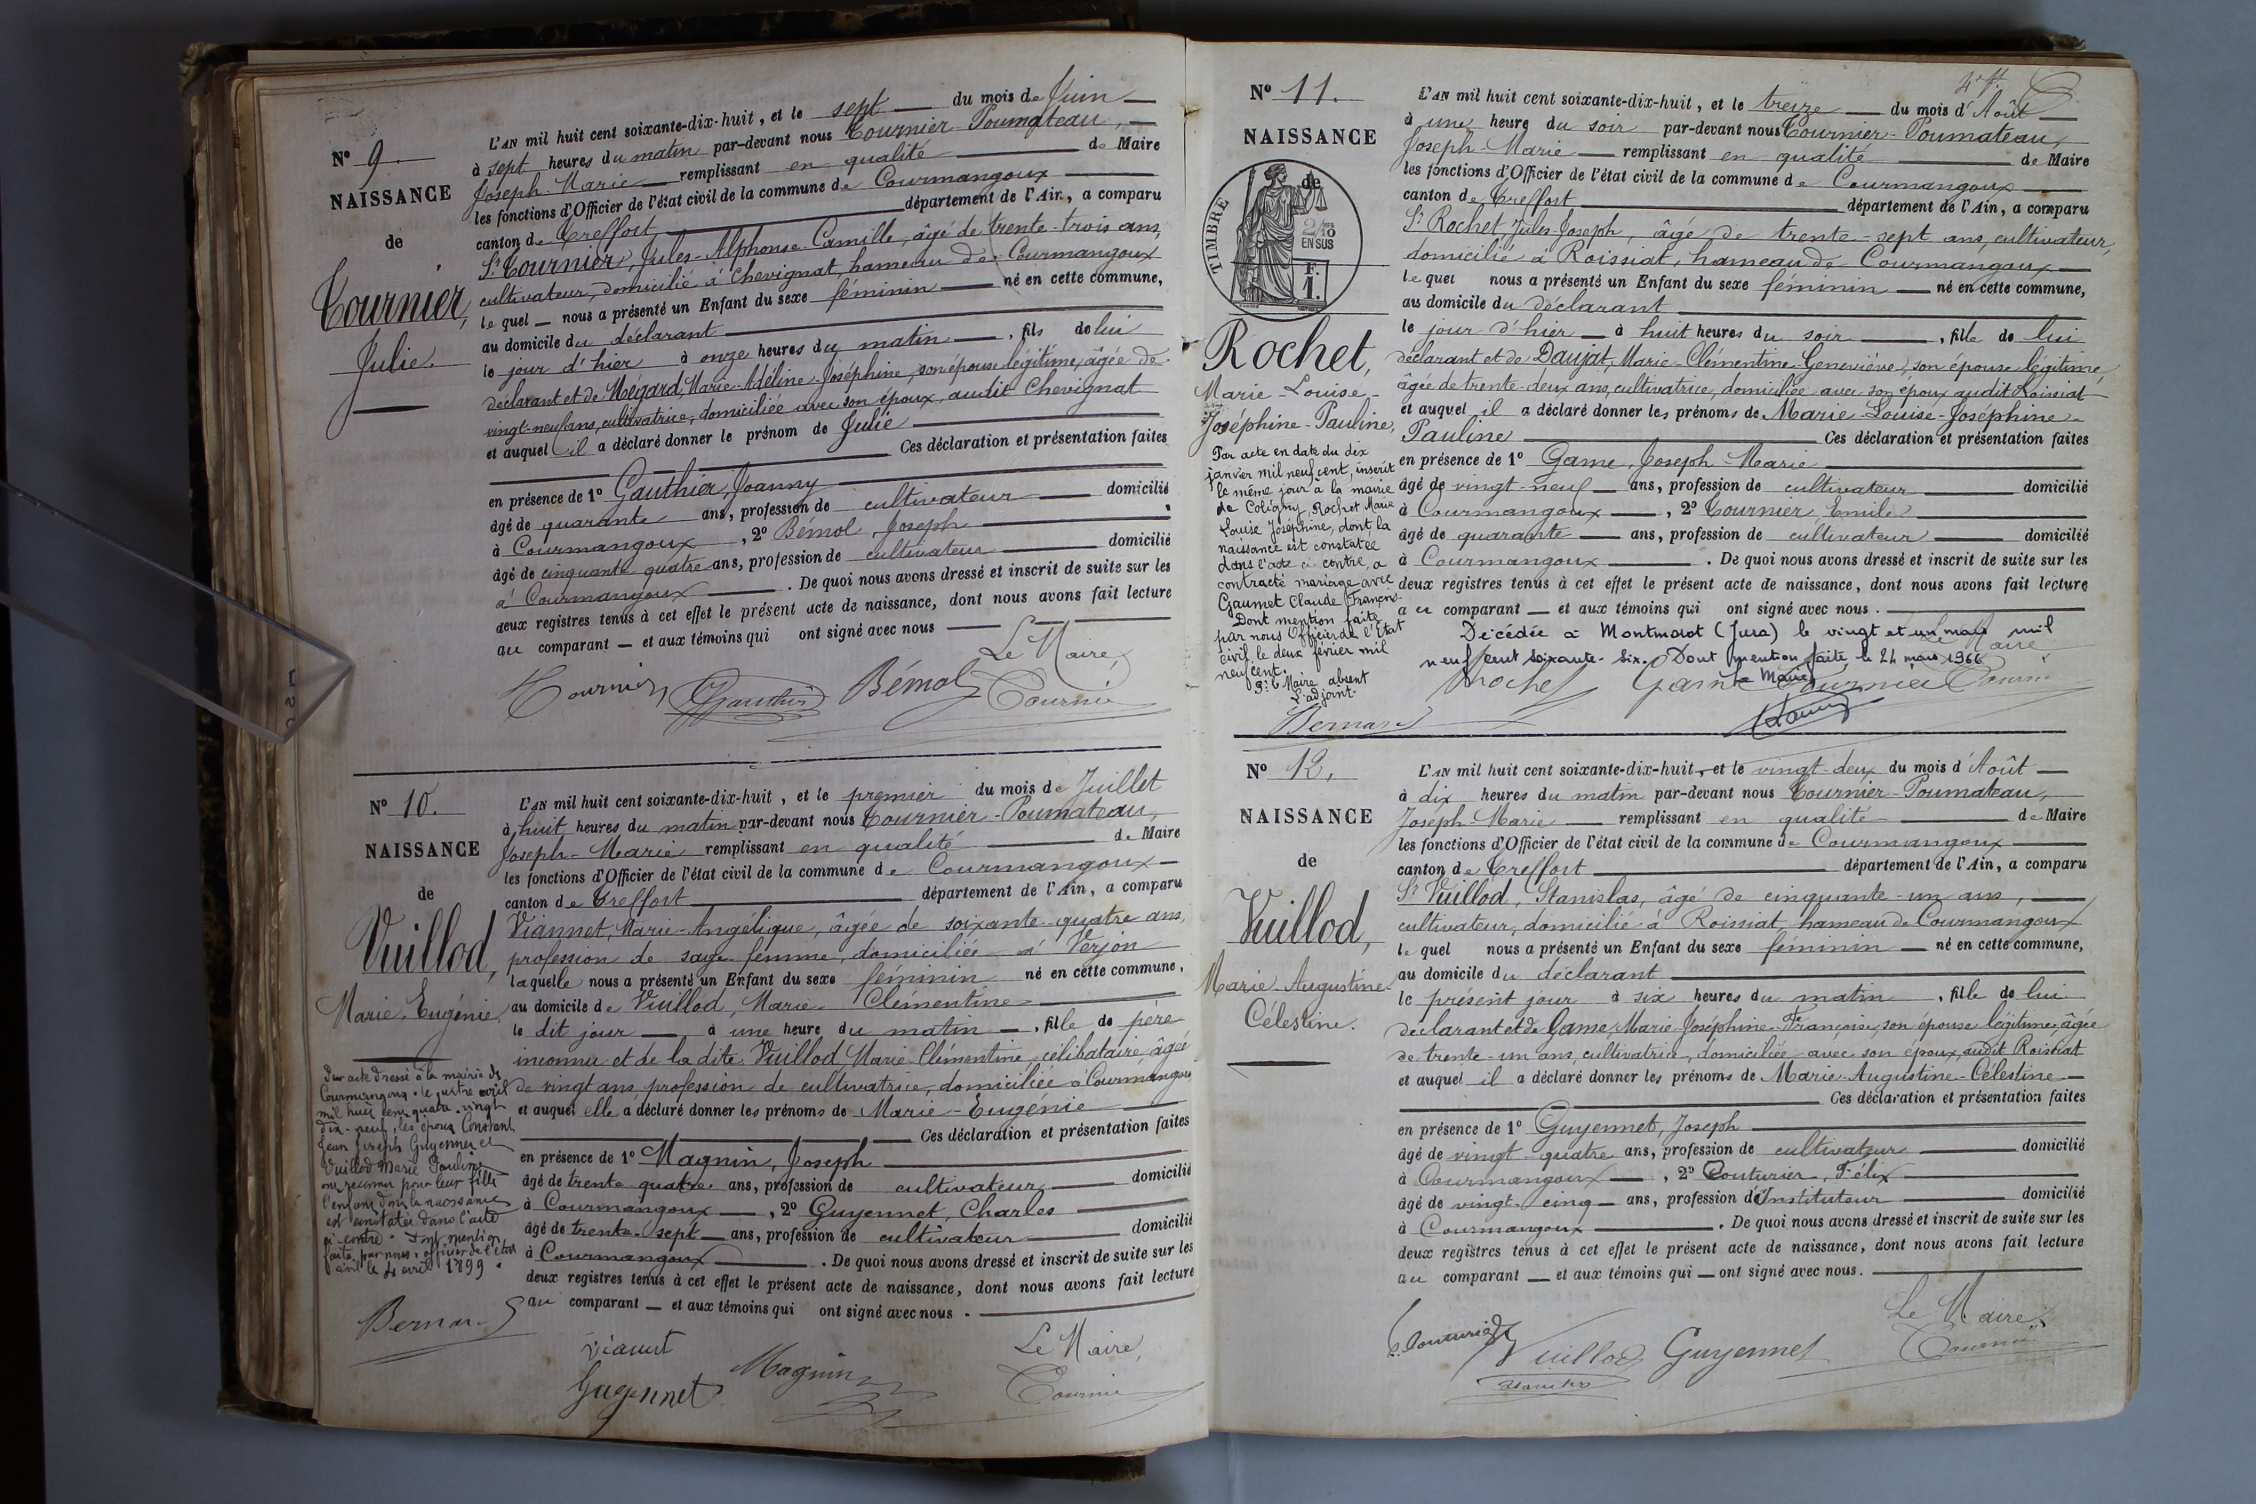 N° 9.
NAISSANCE
de
Tournier,
Julie.
L'AN mil huit cent soixante-dix-huit, et le sept du mois de Juin
à sept heures du matin par-devant nous Tournier-Poumateau,
Joseph-Marie remplissant en qualité de Maire
les fonctions d'Officier de l'état civil de la commune de Courmangoux
canton de Treffort département de l'Ain, a comparu
Sr Tournier, Jules-Alphonse-Camille, âgé de trente-trois ans,
cultivateur, domicilié à Chevignat, hameau de Courmangoux
le quel nous a présenté un Enfant du sexe féminin né en cette commune,
au domicile du déclarant
le jour d'hier à onze heures du matin, fils de lui
déclarant et de Mégard, Marie-Adéline-Joséphine, son épouse légitime, âgée de
vingt-neuf ans, cultivatrice, domiciliée avec son époux, audit Chevignat
et auquel il a déclaré donner le prénom de Julie
Ces déclaration et présentation faites
en présence de 1° Gauthier, Joanny
âgé de quarante ans, profession de cultivateur domicilié
à Courmangoux, 2° Bémol Joseph
âgé de cinquante quatre ans, profession de cultivateur domicilié
à Courmangoux. De quoi nous avons dressé et inscrit de suite sur les
deux registres tenus à cet effet le présent acte de naissance, dont nous avons fait lecture
au comparant et aux témoins qui ont signé avec nous
Le Maire,
Tournier Gauthier Bémol Tournier
N° 10.
NAISSANCE
de
Vuillod,
Marie-Eugénie.
Par acte dressé à la mairie de
Courmangoux le quatre avril
mil huit cent quatre-vingt
dix-neuf, les époux Constant
Jean Joseph Guyennet et
Vuillod Marie
ont reconnu pour leur fille
l'enfant dont la naissance
est constatée dans l'acte
ci-contre. Dont mention
faite par nous, officier de l'état
civil le 4 avril 1899.
L'AN mil huit cent soixante-dix-huit, et le premier du mois de Juillet
à huit heures du matin par-devant nous Tournier-Poumateau,
Joseph-Marie remplissant en qualité de Maire
les fonctions d'Officier de l'état civil de la commune de Courmangoux
canton de Treffort département de l'Ain, a comparu
Viannet, Marie-Angélique, âgée de soixante-quatre ans,
profession de sage-femme, domiciliée à Verjon
laquelle nous a présenté un Enfant du sexe féminin né en cette commune,
au domicile de Vuillod, Marie-Clémentine
le dit jour à une heure du matin, fille de père
inconnu et de la dite Vuillod Marie Clémentine, célibataire, âgée
de vingt ans, profession de cultivatrice, domiciliée à Courmangoux
et auquel elle a déclaré donner les prénoms de Marie-Eugénie
Ces déclaration et présentation faites
en présence de 1° Magnin, Joseph
âgé de trente quatre ans, profession de cultivateur domicilié
à Courmangoux, 2° Guyennet, Charles
âgé de trente-sept ans, profession de cultivateur domicilié
à Courmangoux. De quoi nous avons dressé et inscrit de suite sur les
deux registres tenus à cet effet le présent acte de naissance, dont nous avons fait lecture
au comparant et aux témoins qui ont signé avec nous.
Le Maire,
Magnin
Guyennet Tournier
N° 11.
NAISSANCE
de
TIMBRE
2/10
EN SUS
F.
1.
Rochet,
Marie-Louise-
Joséphine-Pauline,
Par acte en date du dix
janvier mil neuf cent, inscrit
le même jour à la mairie
de Coligny, Rochet Marie
Louise Joséphine, dont la
naissance est constatée
dans l'acte ci contre, a
contracté mariage avec
Gaumet Claude François.
Dont mention faite
par nous Officier de l'Etat
civil le deux février mil
neuf cent.
Pr le Maire absent
L'adjoint.
L'AN mil huit cent soixante-dix-huit, et le treize du mois d'Août
à une heure du soir par-devant nous Tournier-Poumateau,
Joseph-Marie remplissant en qualité de Maire
les fonctions d'Officier de l'état civil de la commune de Courmangoux
canton de Treffort département de l'Ain, a comparu
Sr Rochet Jules Joseph, âgé de trente-sept ans, cultivateur,
domicilié à Roissiat, hameau de Courmangoux
le quel nous a présenté un Enfant du sexe féminin né en cette commune,
au domicile du déclarant
le jour d'hier à huit heures du soir, fille de lui
déclarant et de Daujat, Marie-Clémentine-Geneviève, son épouse légitime,
âgée de trente-deux ans, cultivatrice, domiciliée avec son époux audit Roissiat
et auquel il a déclaré donner les prénoms de Marie-Louise-Joséphine-
Pauline Ces déclaration et présentation faites
en présence de 1° Game, Joseph-Marie
âgé de vingt-neuf ans, profession de cultivateur domicilié
à Courmangoux, 2° Tournier, Emile
âgé de quarante ans, profession de cultivateur domicilié
à Courmangoux. De quoi nous avons dressé et inscrit de suite sur les
deux registres tenus à cet effet le présent acte de naissance, dont nous avons fait lecture
au comparant et aux témoins qui ont signé avec nous.
Décédée à Montmorot (Jura) le vingt et un mars mil
neuf cent soixante-six. Dont mention faite le 24 mars 1966
Le Maire
Le Maire
Rochet Game Tournier Tournier
N° 12.
NAISSANCE
de
Vuillod,
Marie-Augustine-
Célestine.
L'AN mil huit cent soixante-dix-huit, et le vingt-deux du mois d'Août
à dix heures du matin par-devant nous Tournier-Poumateau,
Joseph-Marie remplissant en qualité de Maire
les fonctions d'Officier de l'état civil de la commune de Courmangoux
canton de Treffort département de l'Ain, a comparu
Sr Vuillod, Stanislas, âgé de cinquante-un ans,
cultivateur, domicilié à Roissiat hameau de Courmangoux
le quel nous a présenté un Enfant du sexe féminin né en cette commune,
au domicile du déclarant
le présent jour à six heures du matin, fille de lui
déclarant et de Game, Marie-Joséphine-Françoise, son épouse légitime, âgée
de trente-un ans, cultivatrice, domiciliée avec son époux, audit Roissiat
et auquel il a déclaré donner les prénoms de Marie-Augustine-Célestine
Ces déclaration et présentation faites
en présence de 1° Guyennet, Joseph
âgé de vingt-quatre ans, profession de cultivateur domicilié
à Courmangoux, 2° Couturier, Félix
âgé de vingt-cinq ans, profession d'Instituteur domicilié
à Courmangoux. De quoi nous avons dressé et inscrit de suite sur les
deux registres tenus à cet effet le présent acte de naissance, dont nous avons fait lecture
au comparant et aux témoins qui ont signé avec nous.
Le Maire,
Couturier Vuillod Guyennet Tournier